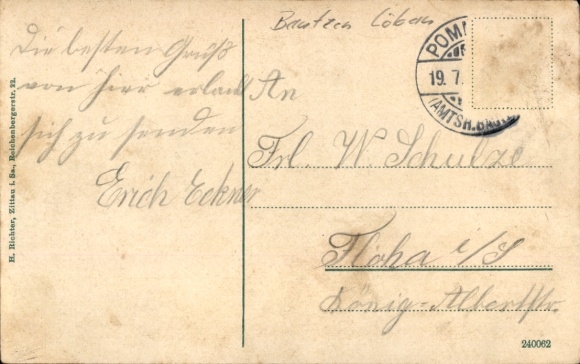 Bautzen Löbau
Die besten Gruß
von hier erlaubt
sich zu senden
Erich Eckner
An
Frl. W. Schulze
Flöha i/S
König-Albertstr.
POMM
19. 7.
(AMTSH. BAUTZ
H. Richter, Zittau i. Sa., Reichenbergerstr. 22.
240062